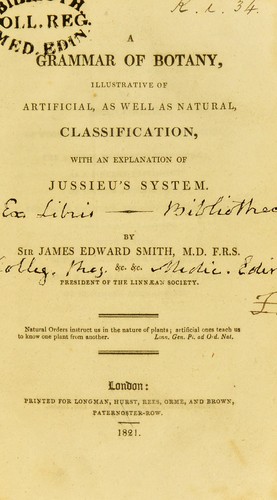 K. 1. 34.
OLL. REG.
MED. EDIN
A
GRAMMAR OF BOTANY,
ILLUSTRATIVE OF
ARTIFICIAL, AS WELL AS NATURAL,
CLASSIFICATION,
WITH AN EXPLANATION OF
JUSSIEU'S SYSTEM.
Ex Libris — Bibliothec
BY
SIR JAMES EDWARD SMITH, M.D. F.R.S.
Colleg. Reg. &c. &c. Medic. Edin
PRESIDENT OF THE LINNÆAN SOCIETY.
Natural Orders instruct us in the nature of plants; artificial ones teach us
to know one plant from another. Linn. Gen. Pl. ad Ord. Nat.
London:
PRINTED FOR LONGMAN, HURST, REES, ORME, AND BROWN,
PATERNOSTER-ROW.
1821.